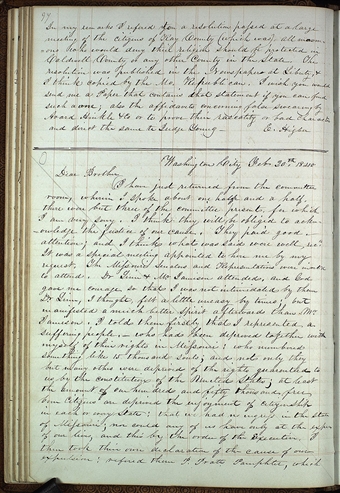 97
In my remarks I refered to a resolution passed at a large
meeting of the citizens of Clay County (which was) all
who would deny their religion should be protected in
Caldwell County or any other County in the State. The
resolution was published in the Newspapers at Liberty, &
I think copied by the Mo. Republican. I wish you would
send me a Paper that contains that statement if you can find
such a one; also the affidavits concerning false swearing by
&c or to prove their rascality or bad character
and direct the same to Judge Young— E. Higbee
Washington City Feb. 20th 1840
Dear Brother,
I have just returned from the committee
room, wherein I spoke about one half and a half.
there were but three of the committee present, for which
I am very sorry. I think they will be obliged to ack-
nowledge the justice of our cause. They paid good
attention; and I think what was said were well
It was a special meeting appointed to hear me by my
request. The Missouri Senators and Representatives were invited
to attend. Dr. Linn & Mr. Jamison attended, and God
gave me courage so that I was not intimidated by them
Dr. Linn, I thought, felt a little uneasy by times; but
manifested a much better spirit afterwards than Mr.
Jamison. I told them firstly that I represented a
suffering people, who had been deprived together with
myself of their rights in Missouri; who numbered
something like 15 thousand souls; and not only they
but many others were deprived of the rights guaranteed to
us by the constitution of the United States; at least
the amount of one hundred and fifty thousand free
born Citizens are deprived the enjoyment of citizenship
in each & every State; that we had no ingress in the state
of Missouri, nor could any of us have only at the expense
of our lives, and this by the order of the Executive. I
then took their own declaration of the cause of our
expulsion; refered them P. Pratts Pamphlet, which